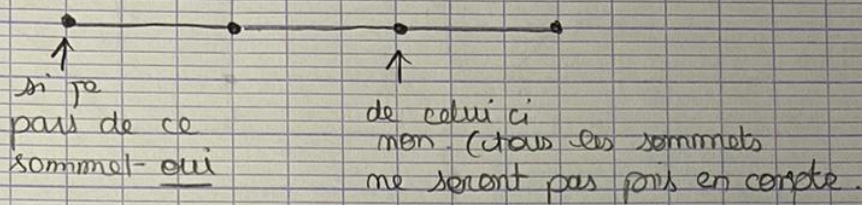 si je
pars de ce
sommet - oui
de celui ci
non. (tous les sommets
ne seront pas pris en compte.